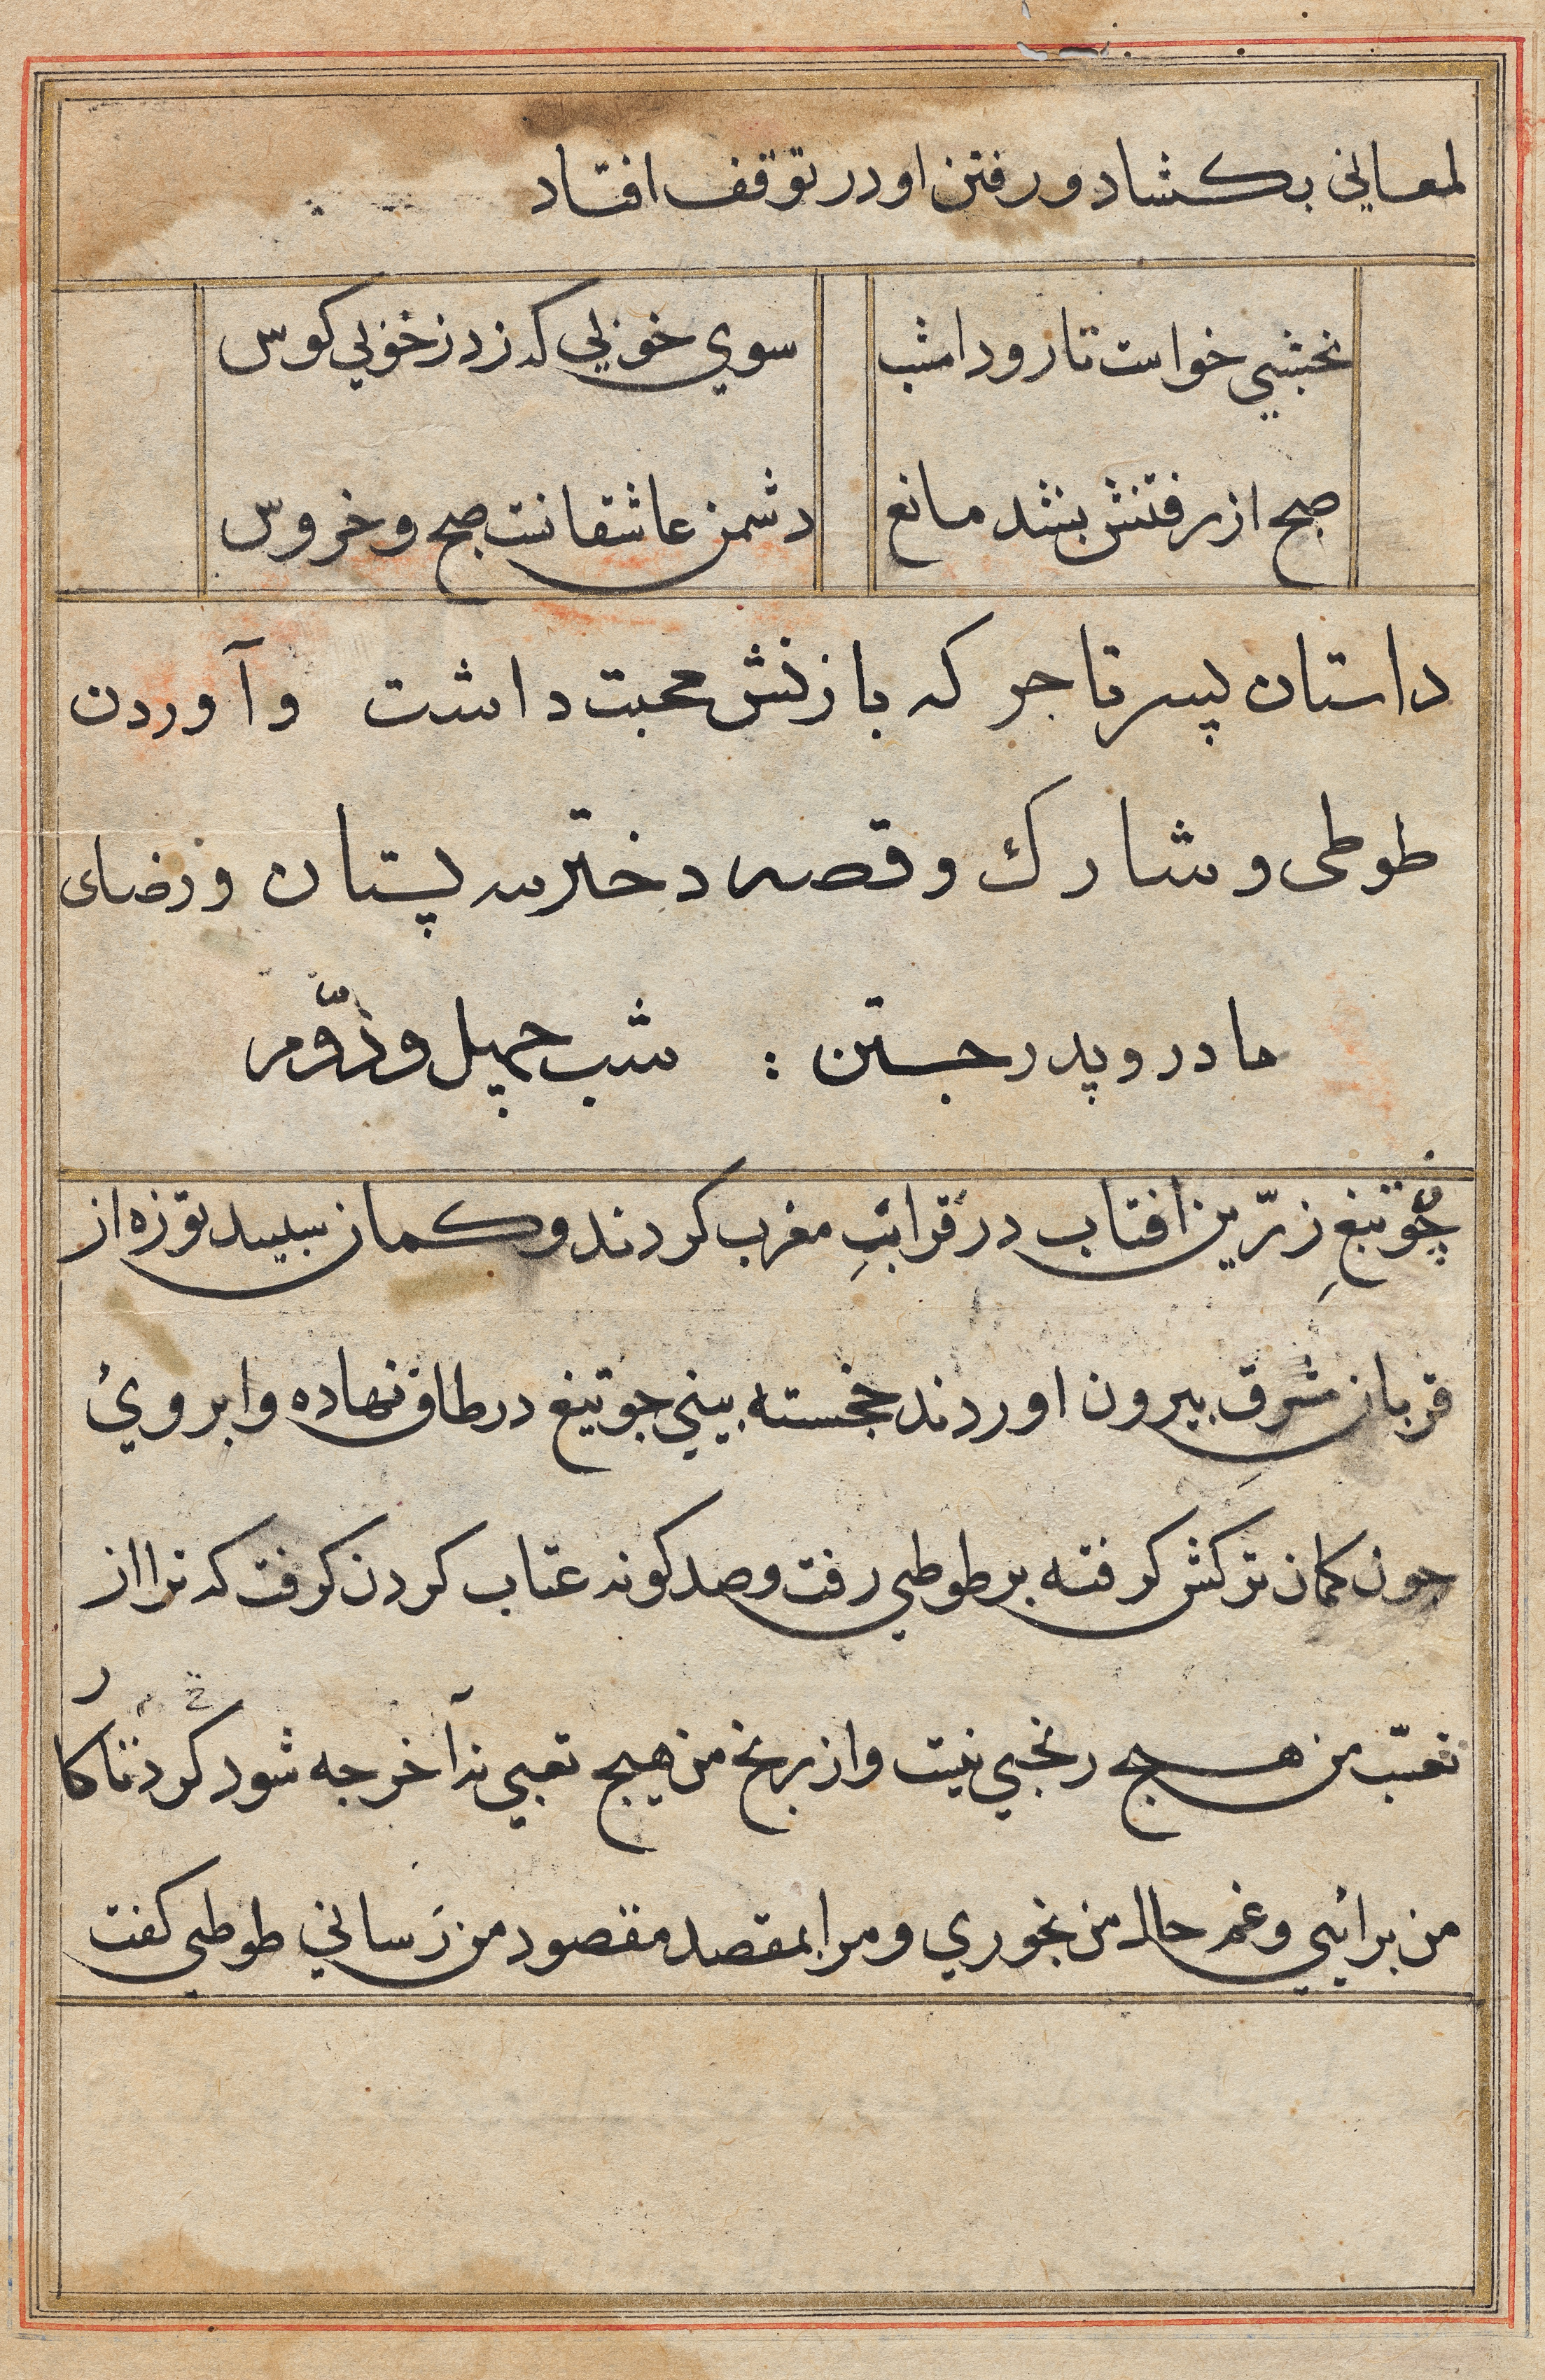 لمعاني بكشاد و رفتن او در توقف افتاد
نخشبي خواست تا رود امشب سوي خوبي كه زد ز خوبي كوس
صبح از رفتنش بشد مانع دشمن عاشقانست صبح و خروس
داستان پسر تاجر كه با زنش محبت داشت و آوردن
طوطى و شارك و قصه دختر سه پستان و رضاى
مادر و پدر جستن : شب چهل و دوّم
چو تيغِ زرّين افتاب در قرابِ مغرب كردند و كمان سپيد توزه از
قربان شرق بيرون اوردند خجسته بيني جو تيغ در طاق نهاده و ابروئ
جون كمان تركش كرفته بر طوطي رفت و صد كونه عتاب كردن كرفت كه ترا از
تعب من هيج رنجي نيست و از رنج من هيج تعبي نه آخر جه شود كر در كار
من برائي و غم حال من بخوري و مرا بمقصد مقصود من رَساني طوطي كفت